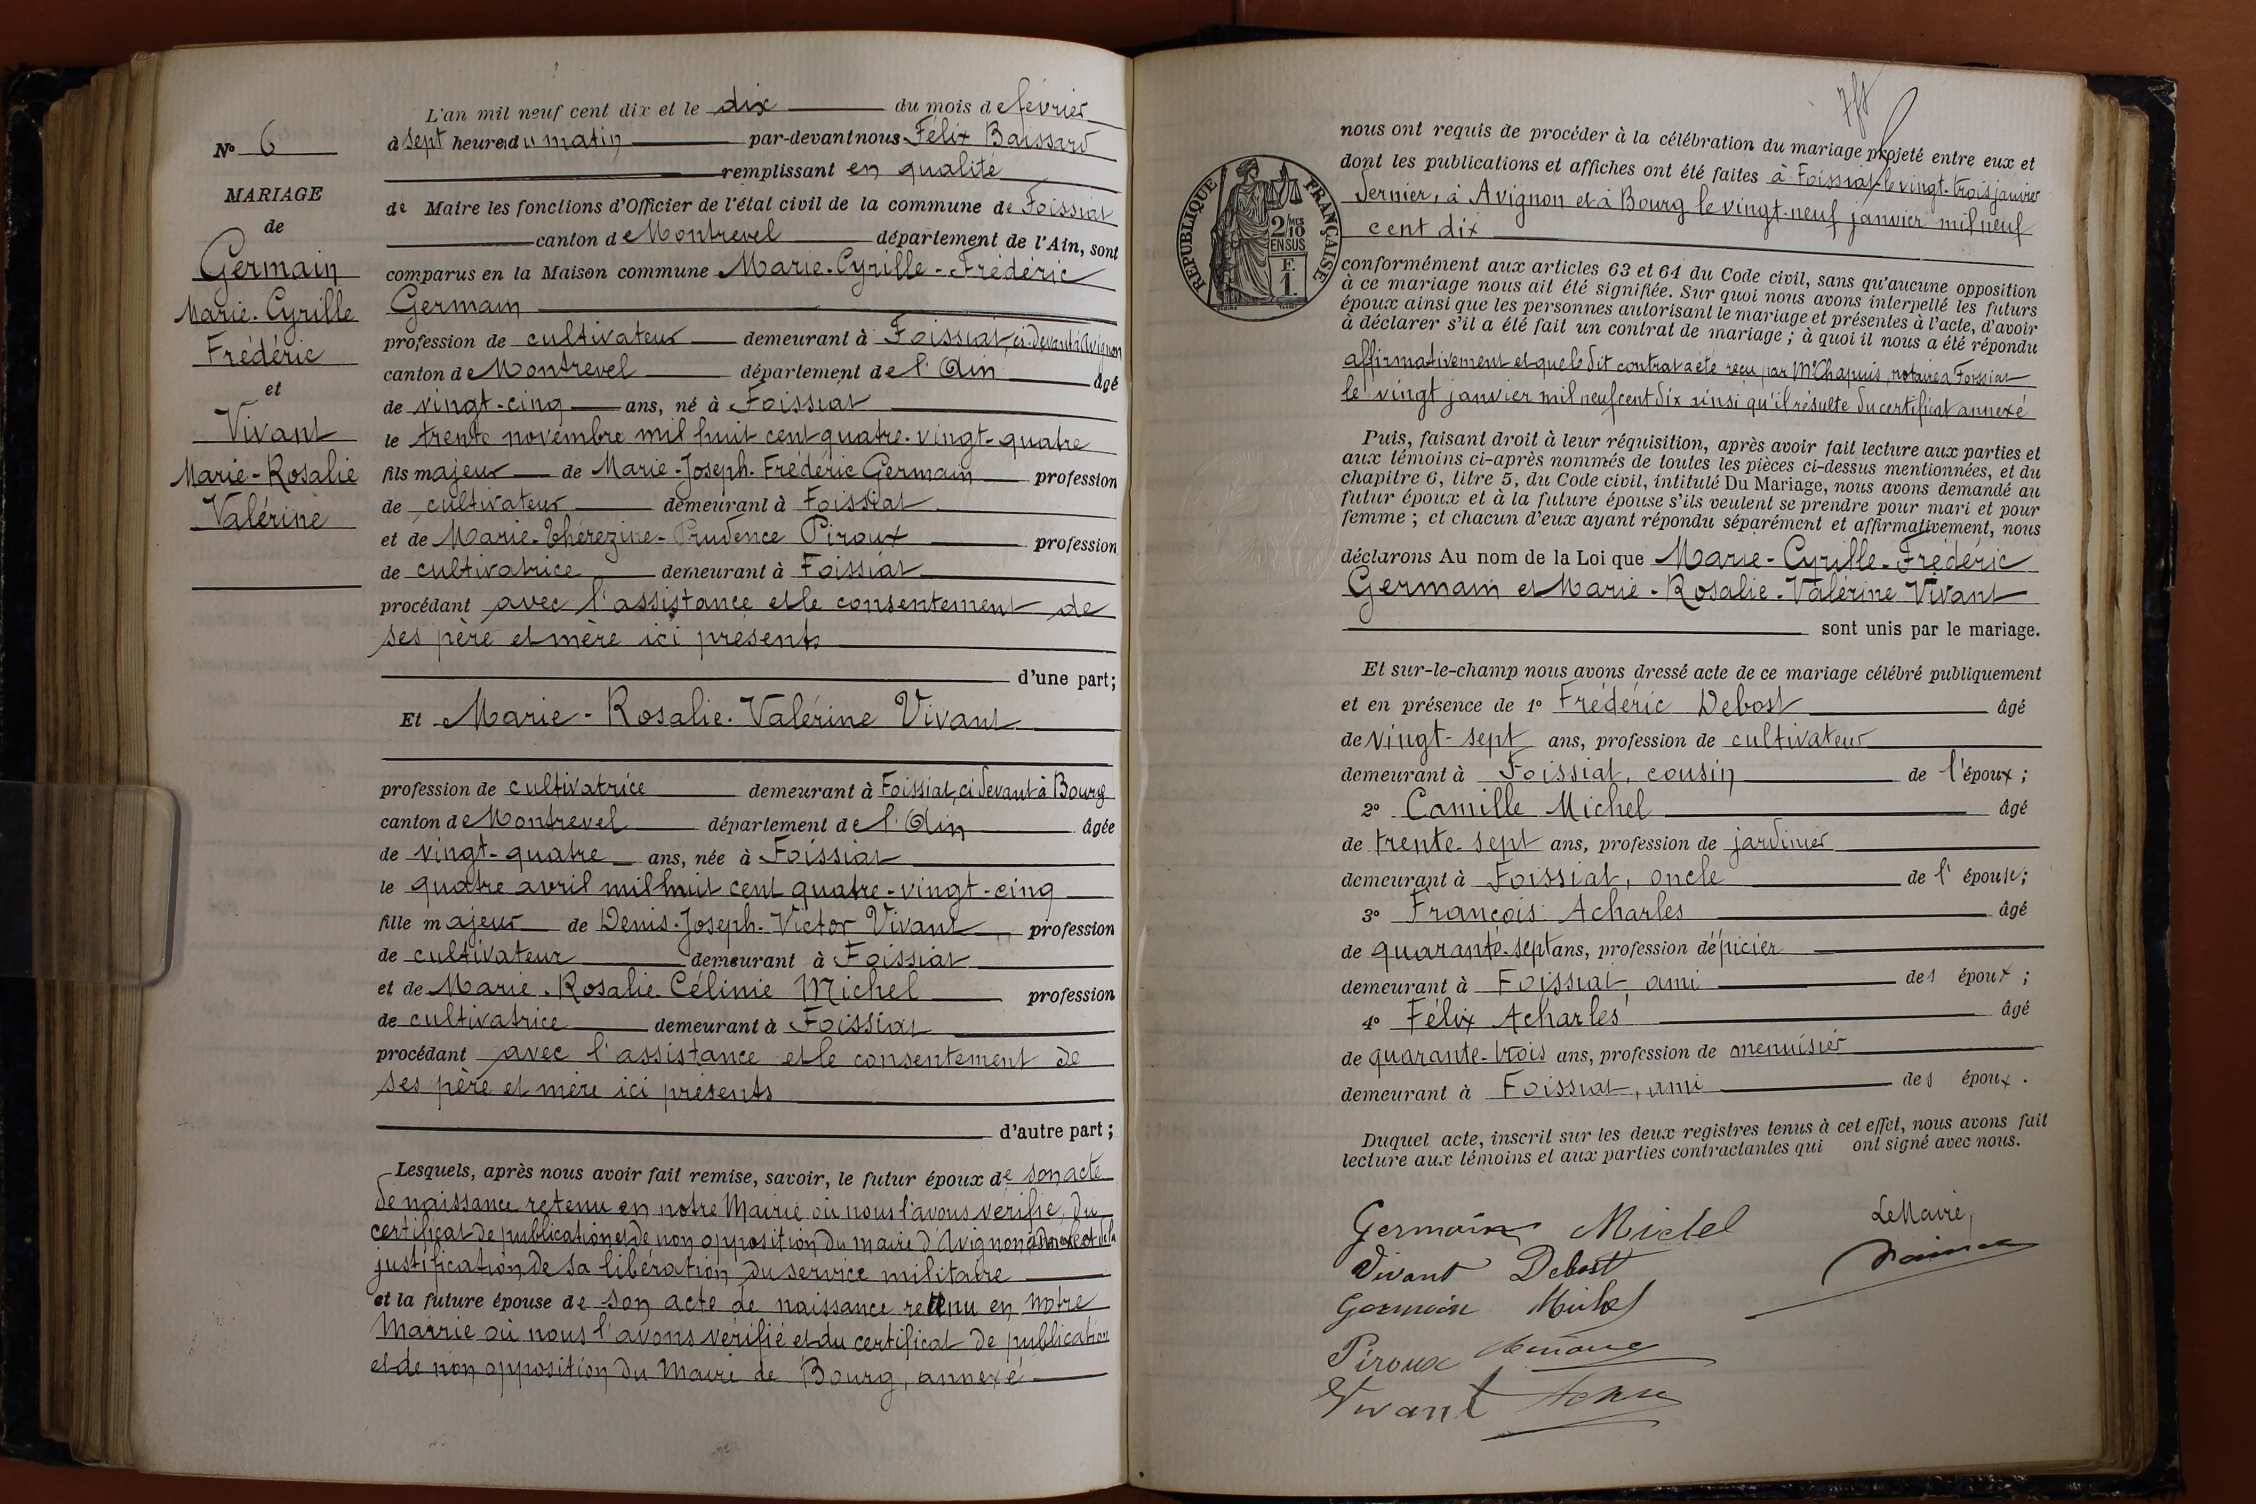 N° 6
MARIAGE
de
Germain
Marie-Cyrille
Frédéric
et
Vivant
Marie-Rosalie
Valérine
L'an mil neuf cent dix et le dix du mois de février
à sept heures du matin par-devant nous Félix Baissard
remplissant en qualité
de Maire les fonctions d'Officier de l'état civil de la commune de Foissiat
canton de Montrevel département de l'Ain, sont
comparus en la Maison commune Marie-Cyrille-Frédéric
Germain
profession de cultivateur demeurant à Foissiat, ci-devant à Avignon
canton de Montrevel département de l'Ain âgé
de vingt-cinq ans, né à Foissiat
le trente novembre mil huit cent quatre-vingt-quatre
fils majeur de Marie-Joseph-Frédéric Germain profession
de cultivateur demeurant à Foissiat
et de Marie-Thérézine-Prudence Piroux profession
de cultivatrice demeurant à Foissiat
procédant avec l'assistance et le consentement de
ses père et mère ici présents
d'une part;
Et Marie-Rosalie-Valérine Vivant
profession de cultivatrice demeurant à Foissiat, ci devant à Bourg
canton de Montrevel département de l'Ain âgée
de vingt-quatre ans, née à Foissiat
le quatre avril mil huit cent quatre-vingt-cinq
fille majeur de Denis-Joseph-Victor Vivant profession
de cultivateur demeurant à Foissiat
et de Marie-Rosalie-Célinie Michel profession
de cultivatrice demeurant à Foissiat
procédant avec l'assistance et le consentement de
ses père et mère ici présents
d'autre part;
Lesquels, après nous avoir fait remise, savoir, le futur époux de son acte
de naissance retenu en notre Mairie où nous l'avons vérifié, du
certificat de publication et de non opposition du maire d'Avignon annexé et de la
justification de sa libération du service militaire
et la future épouse de son acte de naissance retenu en notre
Mairie où nous l'avons vérifié et du certificat de publication
et de non opposition du Maire de Bourg, annexé
RÉPUBLIQUE FRANÇAISE
2/10
EN SUS
F.
1.
nous ont requis de procéder à la célébration du mariage projeté entre eux et
dont les publications et affiches ont été faites à Foissiat le vingt-trois janvier
dernier, à Avignon et à Bourg le vingt-neuf janvier mil neuf
cent dix
conformément aux articles 63 et 64 du Code civil, sans qu'aucune opposition
à ce mariage nous ait été signifiée. Sur quoi nous avons interpellé les futurs
époux ainsi que les personnes autorisant le mariage et présentes à l'acte, d'avoir
à déclarer s'il a été fait un contrat de mariage; à quoi il nous a été répondu
affirmativement et que le dit contrat a été reçu par Me Chapuis, notaire à Foissiat
le vingt janvier mil neuf cent dix ainsi qu'il résulte du certificat annexé
Puis, faisant droit à leur réquisition, après avoir fait lecture aux parties et
aux témoins ci-après nommés de toutes les pièces ci-dessus mentionnées, et du
chapitre 6, titre 5, du Code civil, intitulé Du Mariage, nous avons demandé au
futur époux et à la future épouse s'ils veulent se prendre pour mari et pour
femme; et chacun d'eux ayant répondu séparément et affirmativement, nous
déclarons Au nom de la Loi que Marie-Cyrille-Frédéric
Germain et Marie-Rosalie-Valérine Vivant
sont unis par le mariage.
Et sur-le-champ nous avons dressé acte de ce mariage célébré publiquement
et en présence de 1° Frédéric Debost âgé
de vingt-sept ans, profession de cultivateur
demeurant à Foissiat, cousin de l'époux;
2° Camille Michel âgé
de trente-sept ans, profession de jardinier
demeurant à Foissiat, oncle de l'épouse;
3° François Acharles âgé
de quarante-sept ans, profession d'épicier
demeurant à Foissiat, ami des époux;
4° Félix Acharles âgé
de quarante-trois ans, profession de menuisier
demeurant à Foissiat, ami des époux.
Duquel acte, inscrit sur les deux registres tenus à cet effet, nous avons fait
lecture aux témoins et aux parties contractantes qui ont signé avec nous.
Germain Michel
Le Maire,
Vivant Debost
Germain Michel
Piroux
Vivant